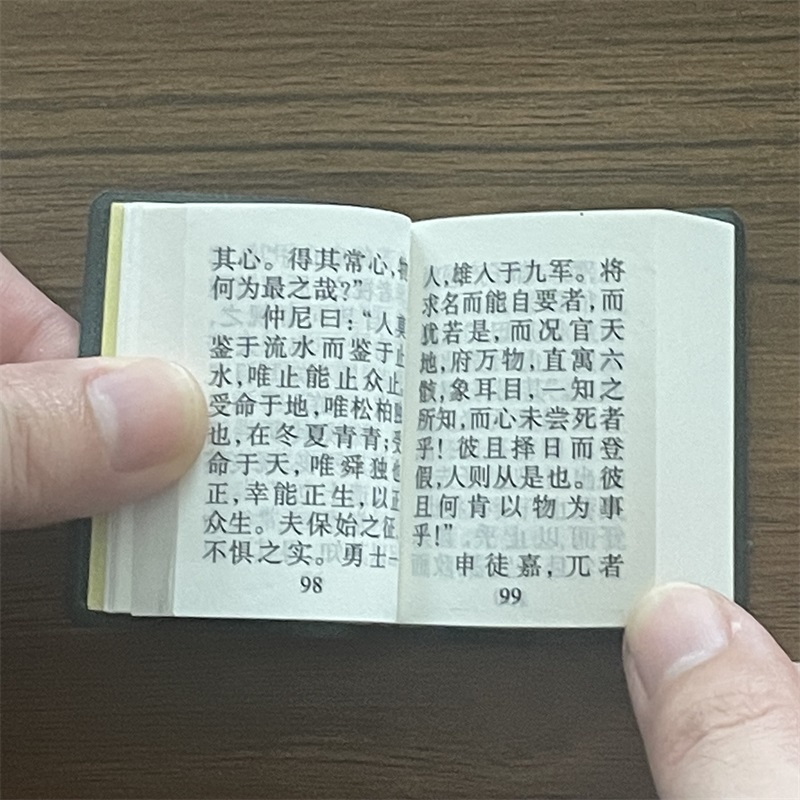 其心。得其常心,物
何为最之哉?”
仲尼曰:“人莫
鉴于流水而鉴于止
水,唯止能止众止。
受命于地,唯松柏独
也,在冬夏青青;受
命于天,唯舜独也
正,幸能正生,以正
众生。夫保始之征,
不惧之实。勇士一
98
人,雄入于九军。将
求名而能自要者,而
犹若是,而况官天
地,府万物,直寓六
骸,象耳目,一知之
所知,而心未尝死者
乎!彼且择日而登
假,人则从是也。彼
且何肯以物为事
乎!”
申徒嘉,兀者
99